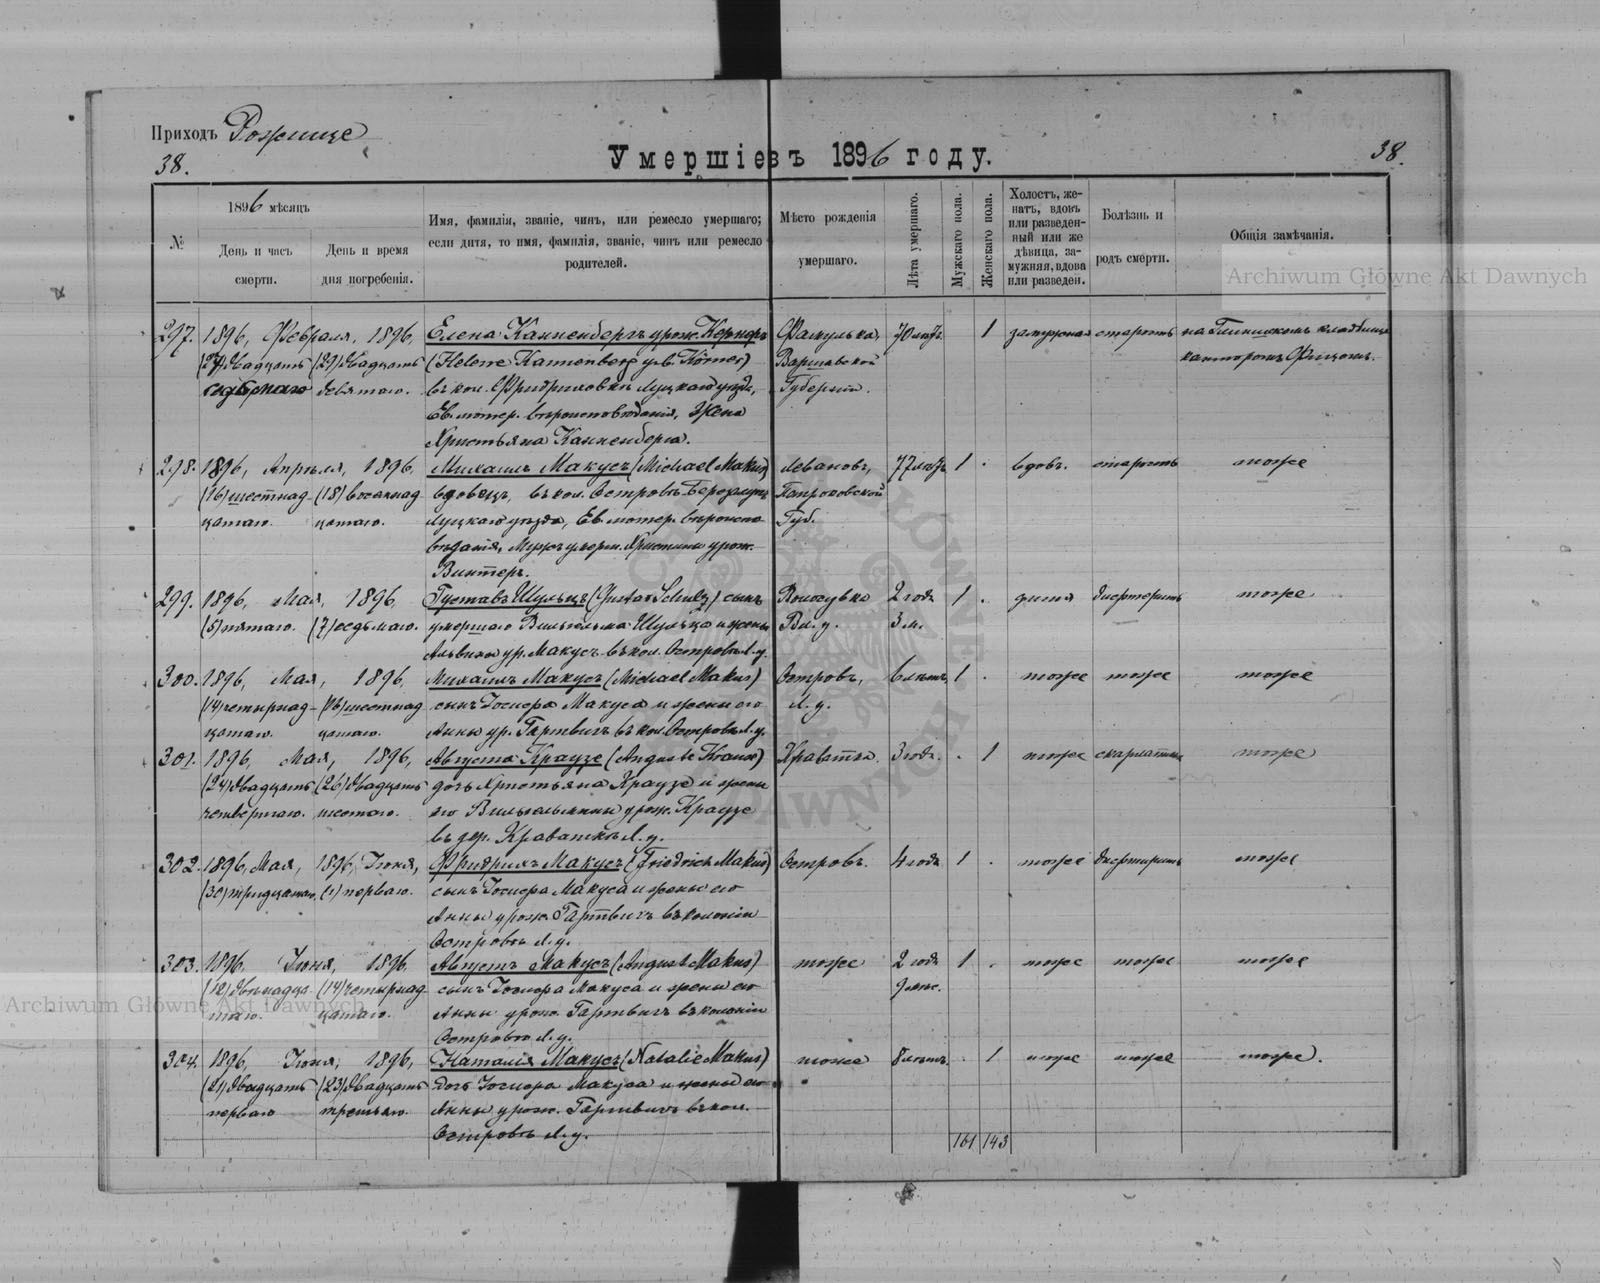 Приходъ Рожище
38.
Умершіе въ 1896 году.
38.
№
1896 мѣсяцъ
День и часъ смерти.
День и время дня погребенія.
Имя, фамилія, званіе, чинъ, или ремесло умершаго; если дитя, то имя, фамилія, званіе, чинъ или ремесло родителей.
Мѣсто рожденія умершаго.
Лѣта умершаго.
Мужскаго пола.
Женскаго пола.
Холостъ, женатъ, вдовъ или разведенный или же дѣвица, замужняя, вдова или разведен.
Болѣзнь и родъ смерти.
Общія замѣчанія.
Archiwum Główne Akt Dawnych
297. 1896, Февраля, 1896, Елена Канненбергъ урож. Кернеръ 70 лѣтъ. 1 замужняя старость
(27) двадцать (29) двадцать (Helene Kannenberg geb. Körner) Варшавской
седьмаго девятаго. въ кол. Фридриховкѣ Луцкаго уѣзда, Губерніи.
Ев. лютер. вѣроисповѣданія, жена
Христьяна Канненберга.
298. 1896, Апрѣля, 1896, Михаилъ Макусъ (Michael Makus) 77 лѣтъ 1 . вдовъ. старость тоже
(16) шестнад- (18) восемнад- вдовецъ, въ кол. Островѣ Петроковской
цатаго. цатаго. Луцкаго уѣзда, Ев. лютер. вѣроиспо- Губ.
вѣданія, Мужъ умерш. Христины урож.
Винтеръ.
299. 1896, Мая, 1896, Густавъ Шульцъ (Gustav Schulz) сынъ 2 года 1 . дитя дифтеритъ тоже
(5) пятаго. (7) седьмаго. умершаго Вильгельма Шульца и жены Вл. у. 3 м.
Альвины ур. Макусъ въ кол. Островѣ Л. у.
300. 1896, Мая, 1896, Михаилъ Макусъ (Michael Makus) Островъ, 6 лѣтъ, 1 . тоже тоже тоже
(14) четырнад- (16) шестнад- сынъ Макуса и жены его Л. у.
цатаго. цатаго. Анны ур. Гартвигъ въ кол. Островѣ Л. у.
301. 1896, Мая, 1896, Августа Краузе (Auguste Krause) 3 года. . 1 тоже скарлатина тоже
(24) двадцать (26) двадцать дочь Христьяна Краузе и жены
четвертаго. шестаго. его Вильгельмины урож. Краузе
въ дер. Краваткѣ Л. у.
302. 1896, Мая, 1896, Іюня, Фридрихъ Макусъ (Friedrich Makus) Островъ. 4 года 1 . тоже дифтеритъ тоже
(30) тридцатаго, (1) перваго. сынъ Макуса и жены его
Анны урож. Гартвигъ въ колоніи
Островѣ Л. у.
303. 1896, Іюня, 1896, Августъ Макусъ (August Makus) тоже 2 года 1 . тоже тоже тоже
(12) двѣнадца- (14) четырнад- сынъ Макуса и жены его 9 мѣс.
таго. цатаго. Анны урож. Гартвигъ въ колоніи
Островѣ Л. у.
Archiwum Główne Akt Dawnych
304. 1896, Іюня, 1896, Наталія Макусъ (Natalie Makus) тоже 8 лѣтъ. . 1 тоже тоже тоже.
(21) двадцать (23) двадцать дочь Макуса и жены его
перваго третьяго. Анны урож. Гартвигъ въ кол.
Островѣ Л. у.
161 143